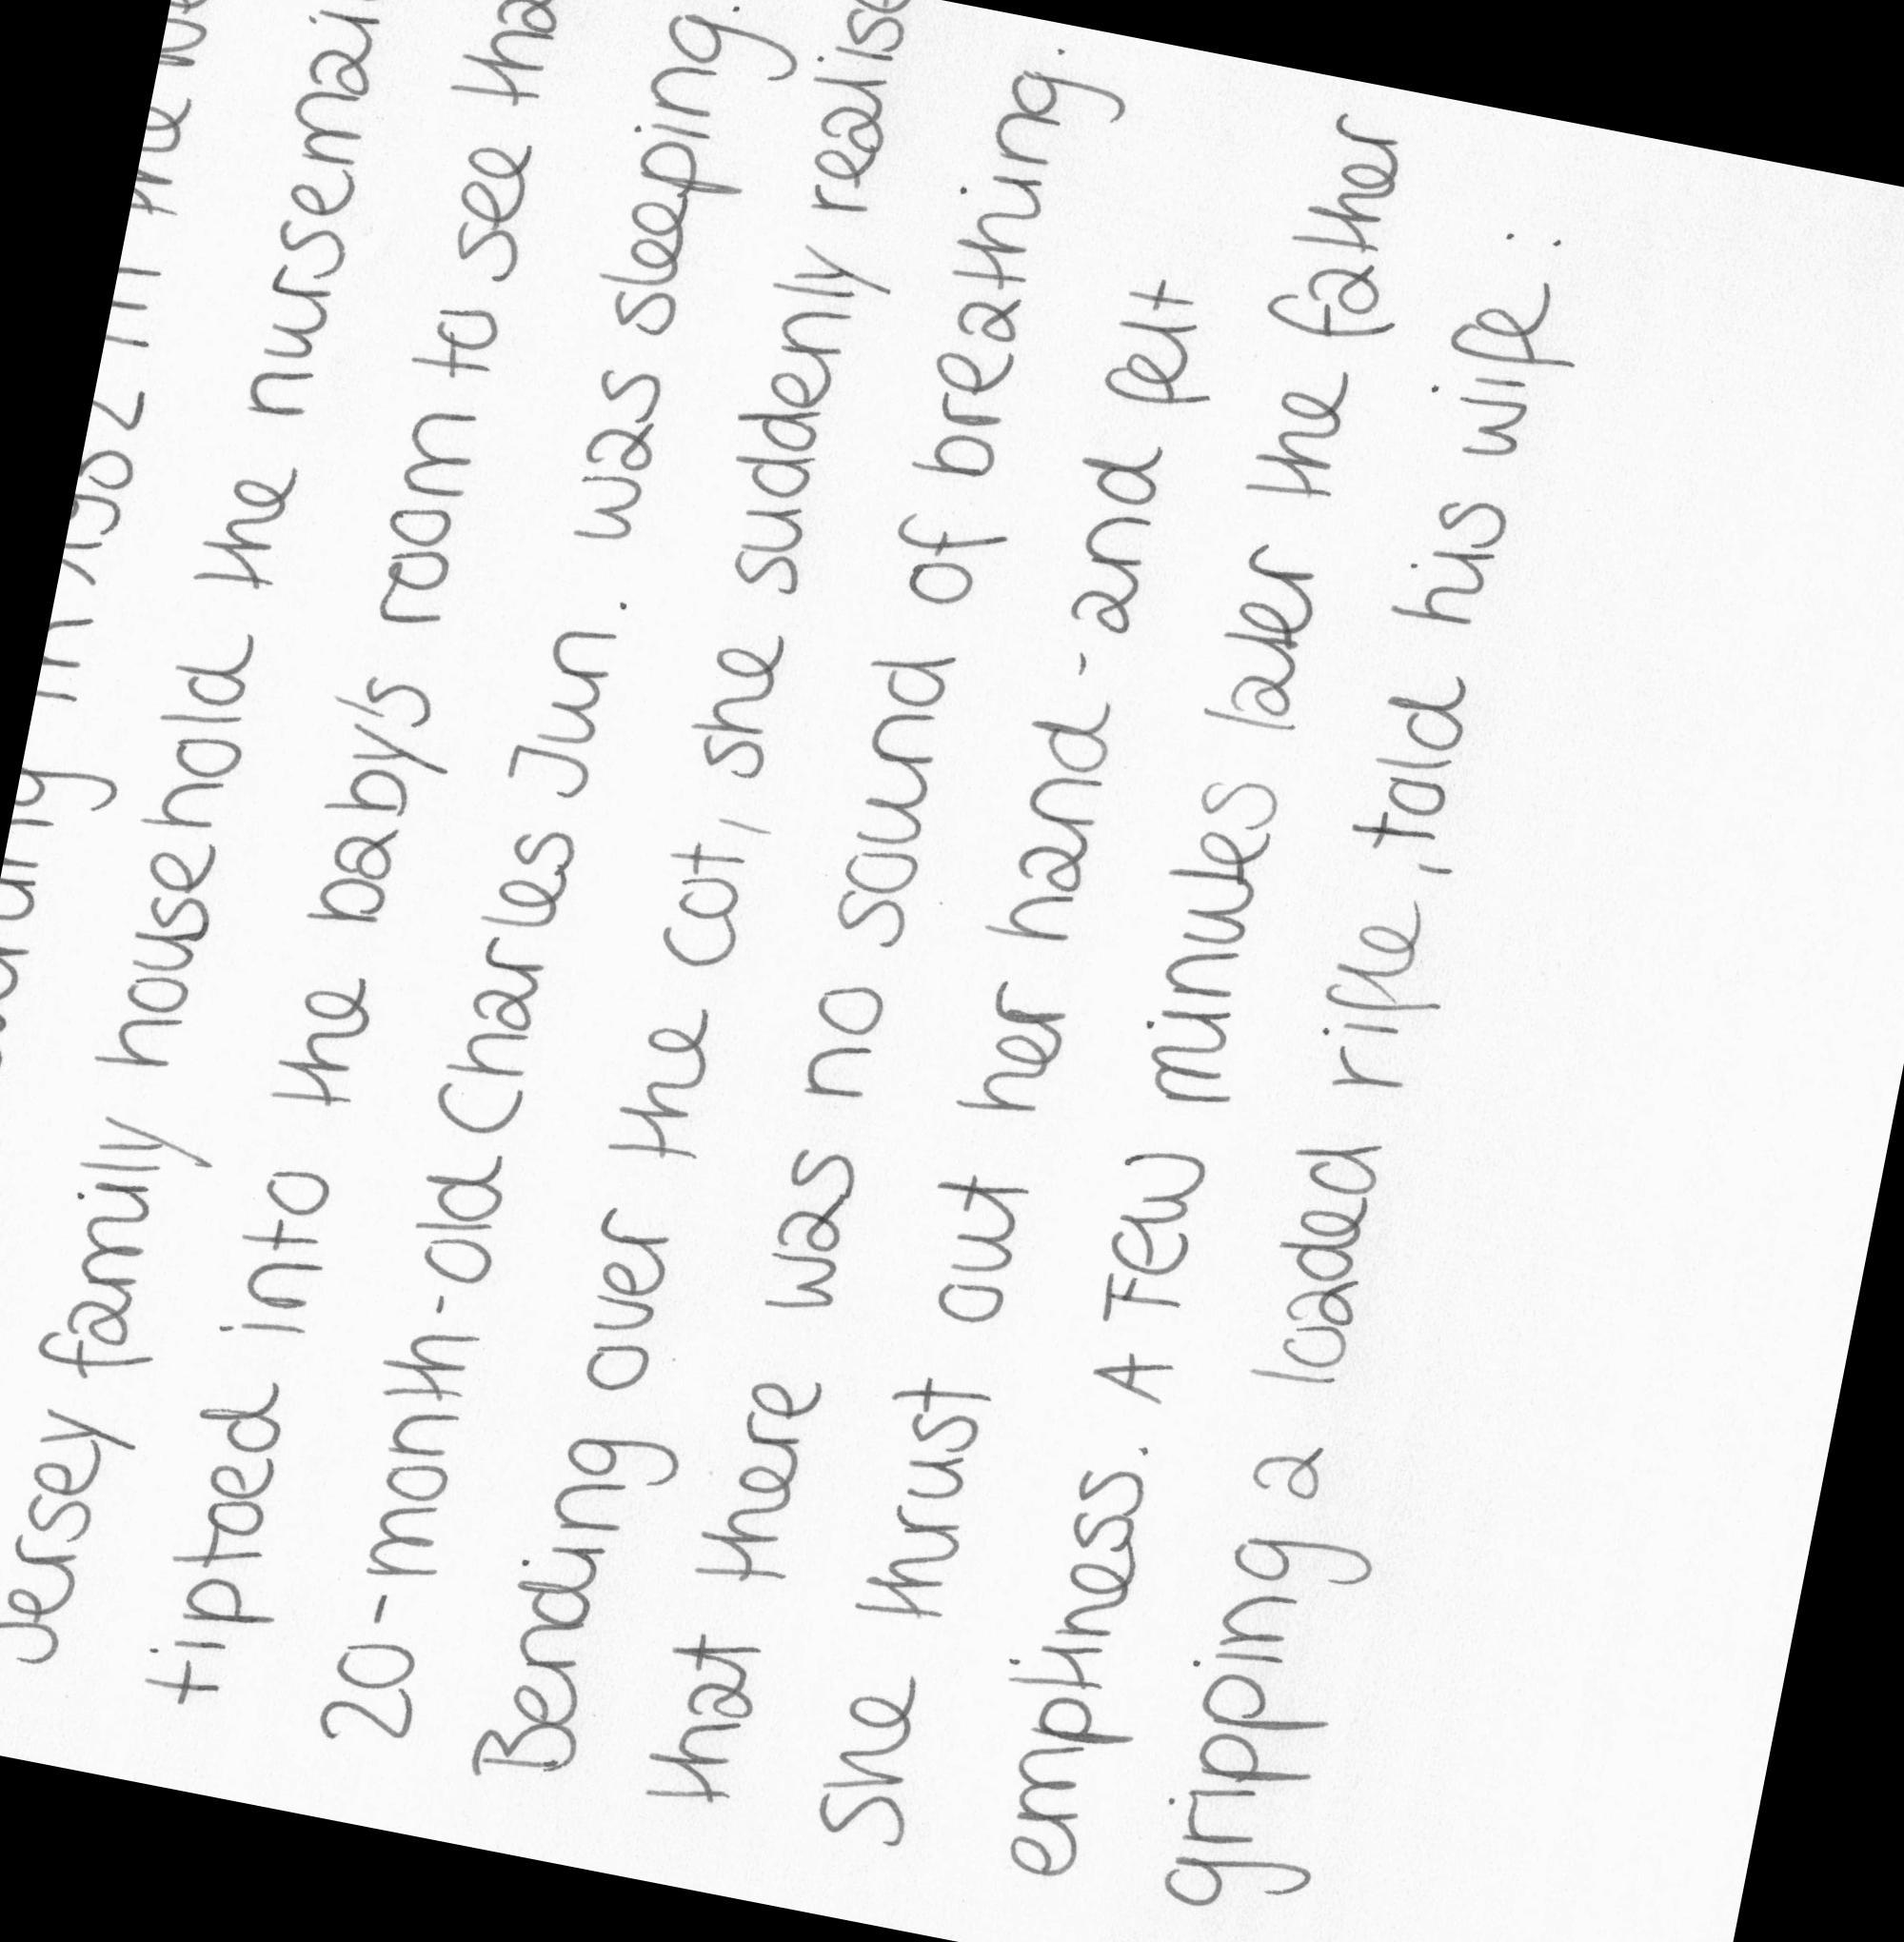 in 1932 in the
Jersey family household the nursemai
tiptoed into the baby's room to see tha
20-month-old Charles Jun. was sleeping.
Bending over the cot, she suddenly realise
that there was no sound of breathing.
She thrust out her hand - and felt
emptiness. A FEW minutes later the father
gripping a loaded rifle, told his wife: